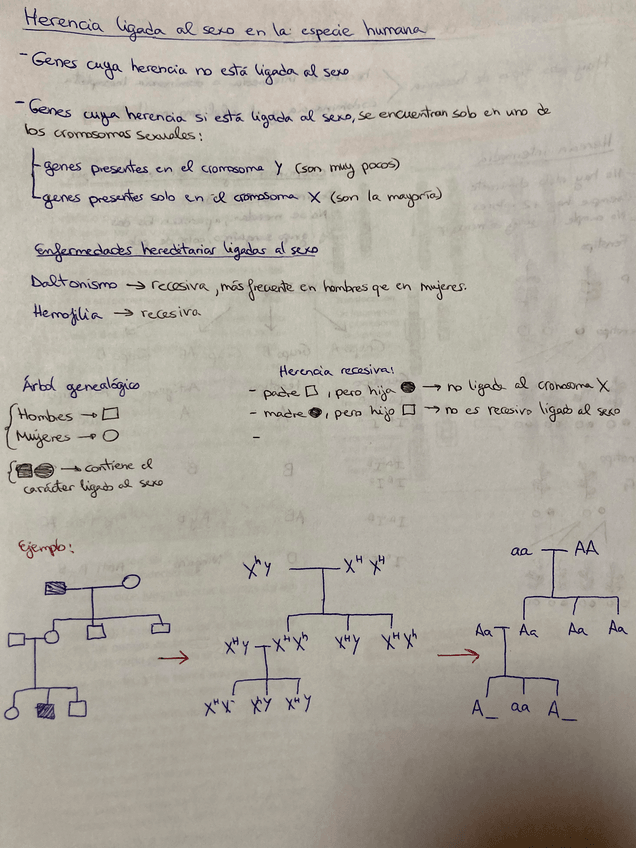 Herencia ligada al sexo en la especie humana
- Genes cuya herencia no está ligada al sexo
- Genes cuya herencia si está ligada al sexo, se encuentran solo en uno de
los cromosomas sexuales:
- genes presentes en el cromosoma Y (son muy pocos)
- genes presentes solo en el cromosoma X (son la mayoría)
Enfermedades hereditarias ligadas al sexo
Daltonismo → recesiva, más frecuente en hombres que en mujeres.
Hemofilia → recesiva
Árbol genealógico
Hombres → □
Mujeres → ○
→ contiene el
carácter ligado al sexo
Herencia recesiva:
- padre □, pero hija ● → no ligada al cromosoma X
- madre ●, pero hijo □ → no es recesivo ligado al sexo
-
Ejemplo:
XʰY XᴴXᴴ
XᴴY XᴴXʰ XᴴY XᴴXʰ
XᴴX⁻ XʰY XᴴY
aa AA
Aa Aa Aa Aa
A_ aa A_